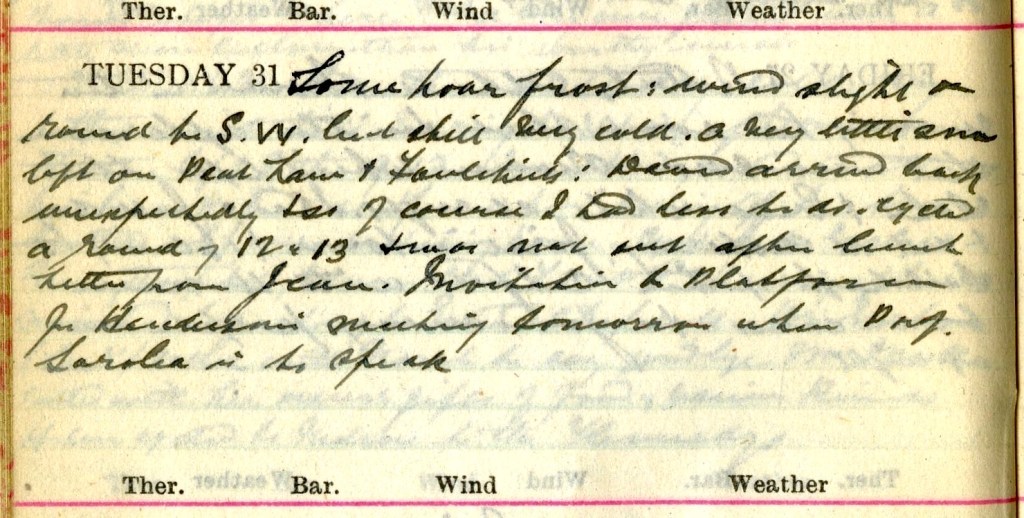 Ther. Bar. Wind Weather
TUESDAY 31 Some hoar frost: wind slight &
round to S.W. but still very cold. a very little snow
left on Peat Law & Foulshiels: David arrived back
unexpectedly & so of course I had less to do. cycled
a round of 12 or 13 & was not out after lunch
Letter from Jean. Invitation to Platform
for Henderson's meeting tomorrow when Prof.
Sarolea is to speak
Ther. Bar. Wind Weather